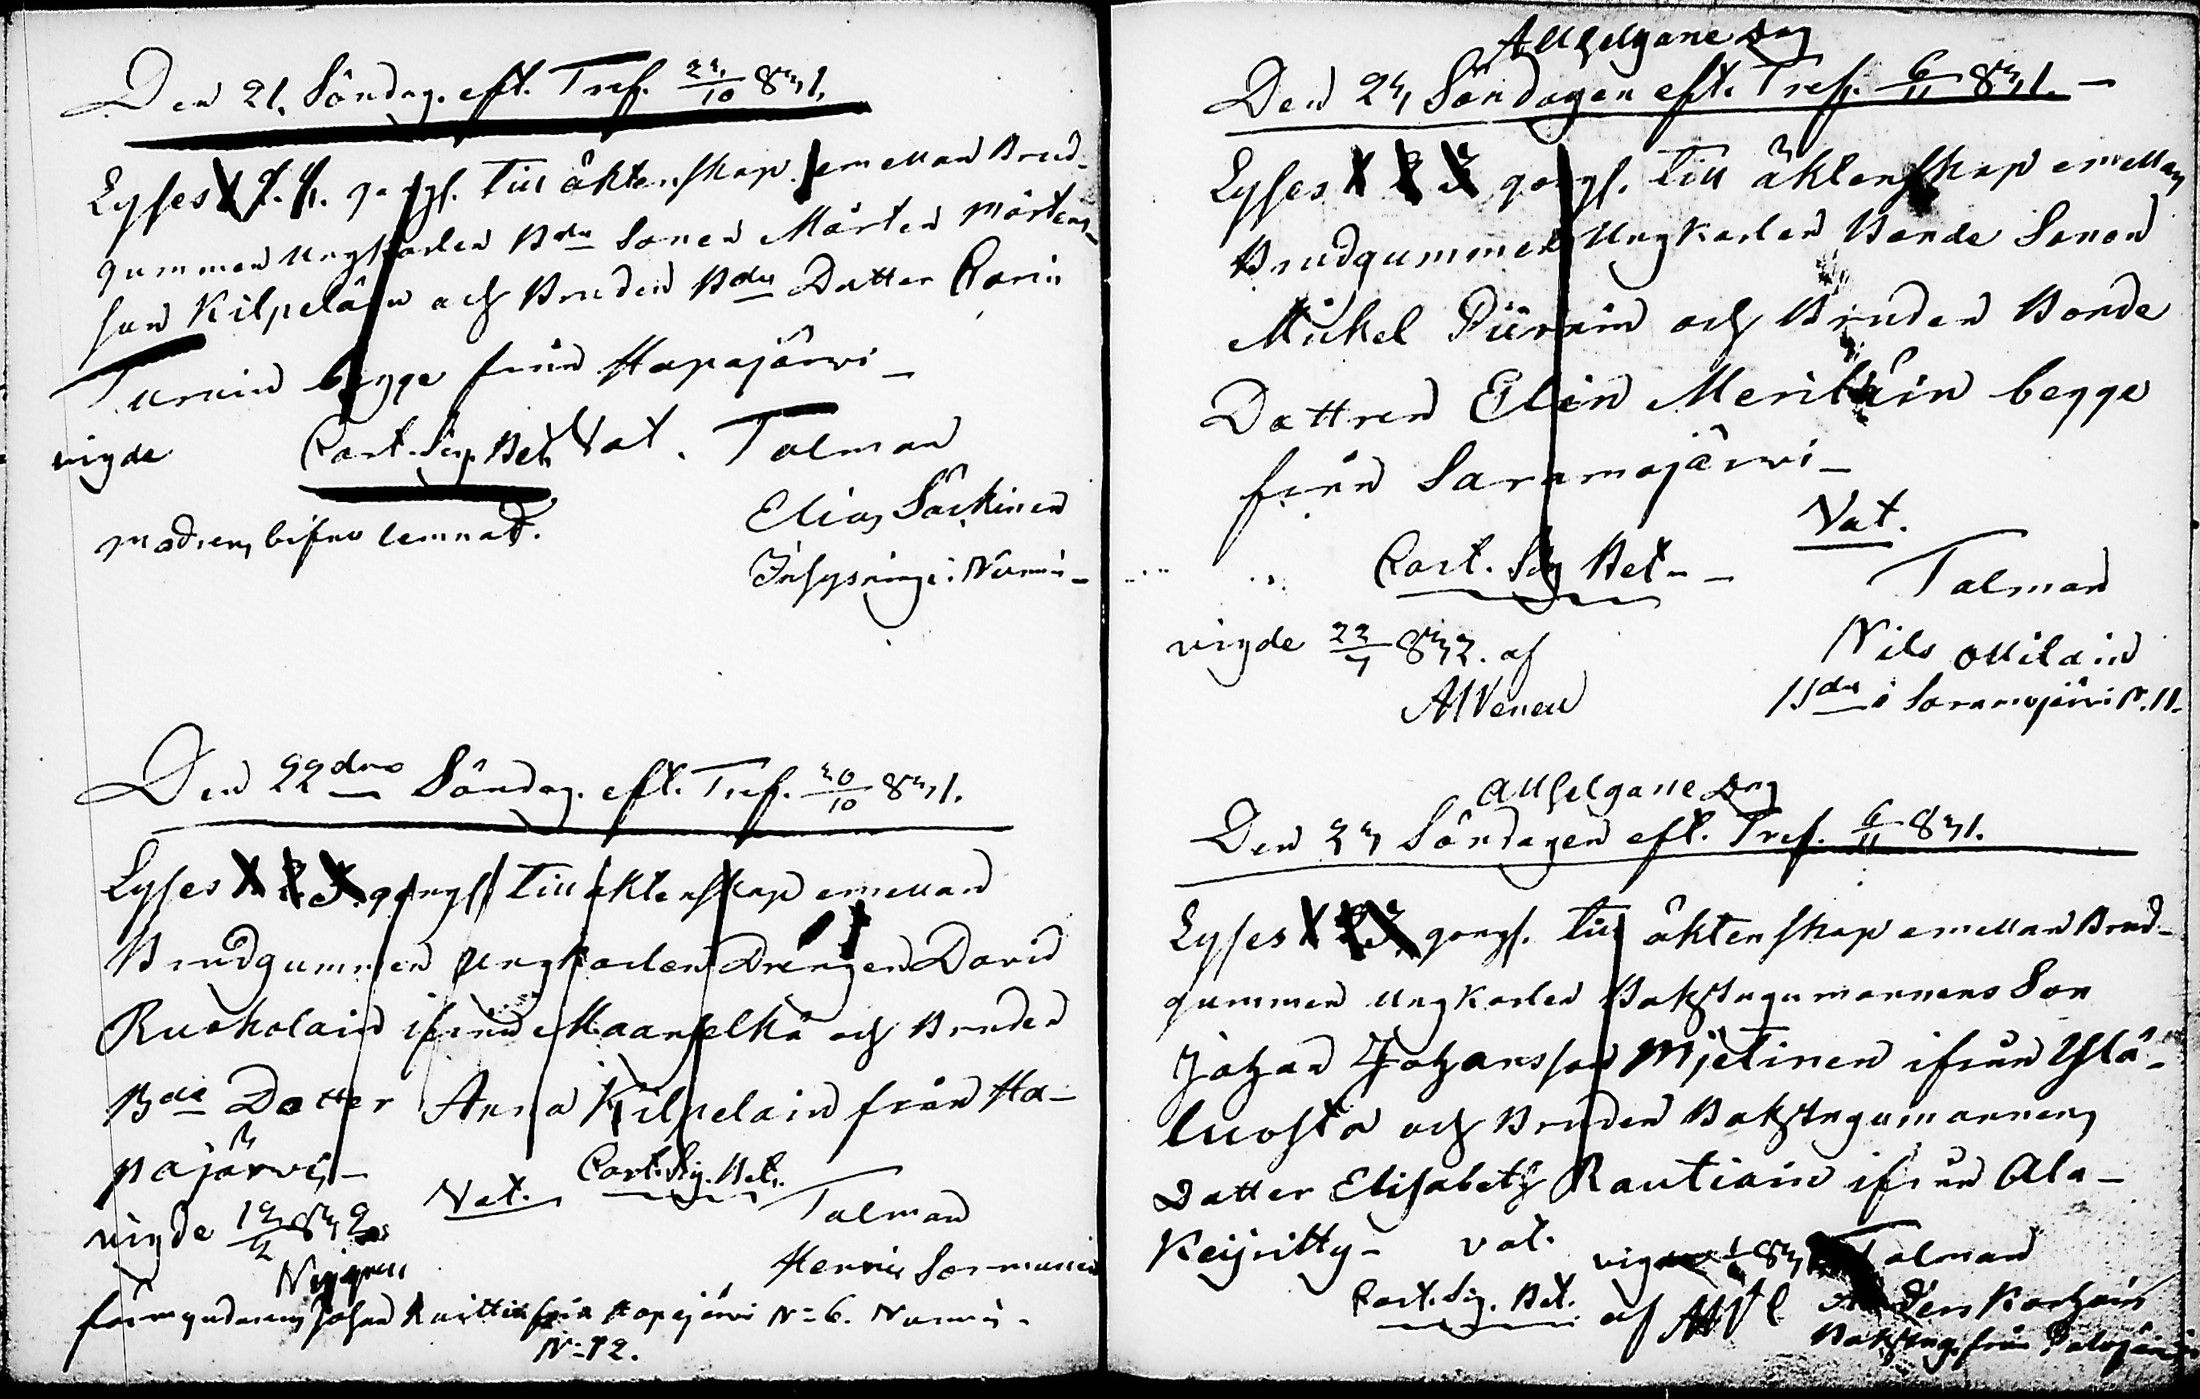 Den 21. Söndag. eft. Tref. 23/10 831.
Lyses 1. 2. 3. gangs. till äktenskap emellan Brud-
gummen Ungkarlen Bde Sonen Mårten Mårtens-
son Kilpeläin och Bruden Bde Dotter Carin
Turuin begge från Hapajärwi
vigde Cart. Sig. Bet. Vat. Talman
Elias Säckinen
modren, bifall lemnat.
Inhysning i Nurmis
Den 22dra Söndag. eft. Tref. 30/10 831.
Lyses 1 2 3 gangs till äktenskap emellan
Brudgummen Ungkarlen Drängen David
Ruokolain ifrån Maanselkä och Bruden
Bde Dotter Anna Kilpelain från Ha-
pajärwi
Vat. Cart. Sig. Bet.
vigde Talman
Nygren
Henric Sormunen
förmyndaren Johan från Hapajärvi N=6. Nurmis
N=12.
Allhelgone dag
Den 23 Söndagen eft. Tref. 6/11 831.
Lyses 1 2 3 gangs. till äktenskap emellan
Brudgummen Ungkarlen Bonde Sonen
Mickel Piirain och Bruden Bonde
Dottren Elin Meriläin begge
från Saramojärwi
Vat.
Cart. Sig Bet.
Talman
vigde 832. af
Nils
Alvenen
Bde i Saramojärvi N. 11.
Allhelgone dag
Den 23 Söndagen eft. Tref. 6/11 831.
Lyses 1 2 3 gangs. till äktenskap emellan Brud-
gummen Ungkarlen Bakstugumannens Son
Johan Johansson Mjetinen ifrån Ylä-
luosta och Bruden Bakstugumannens
Dotter Elisabeth Rautiain ifrån Ala-
Keijritty vat.
Talman
Cart. Sig. Bet. af
Korhoin
Bakstug. från Palojärvi